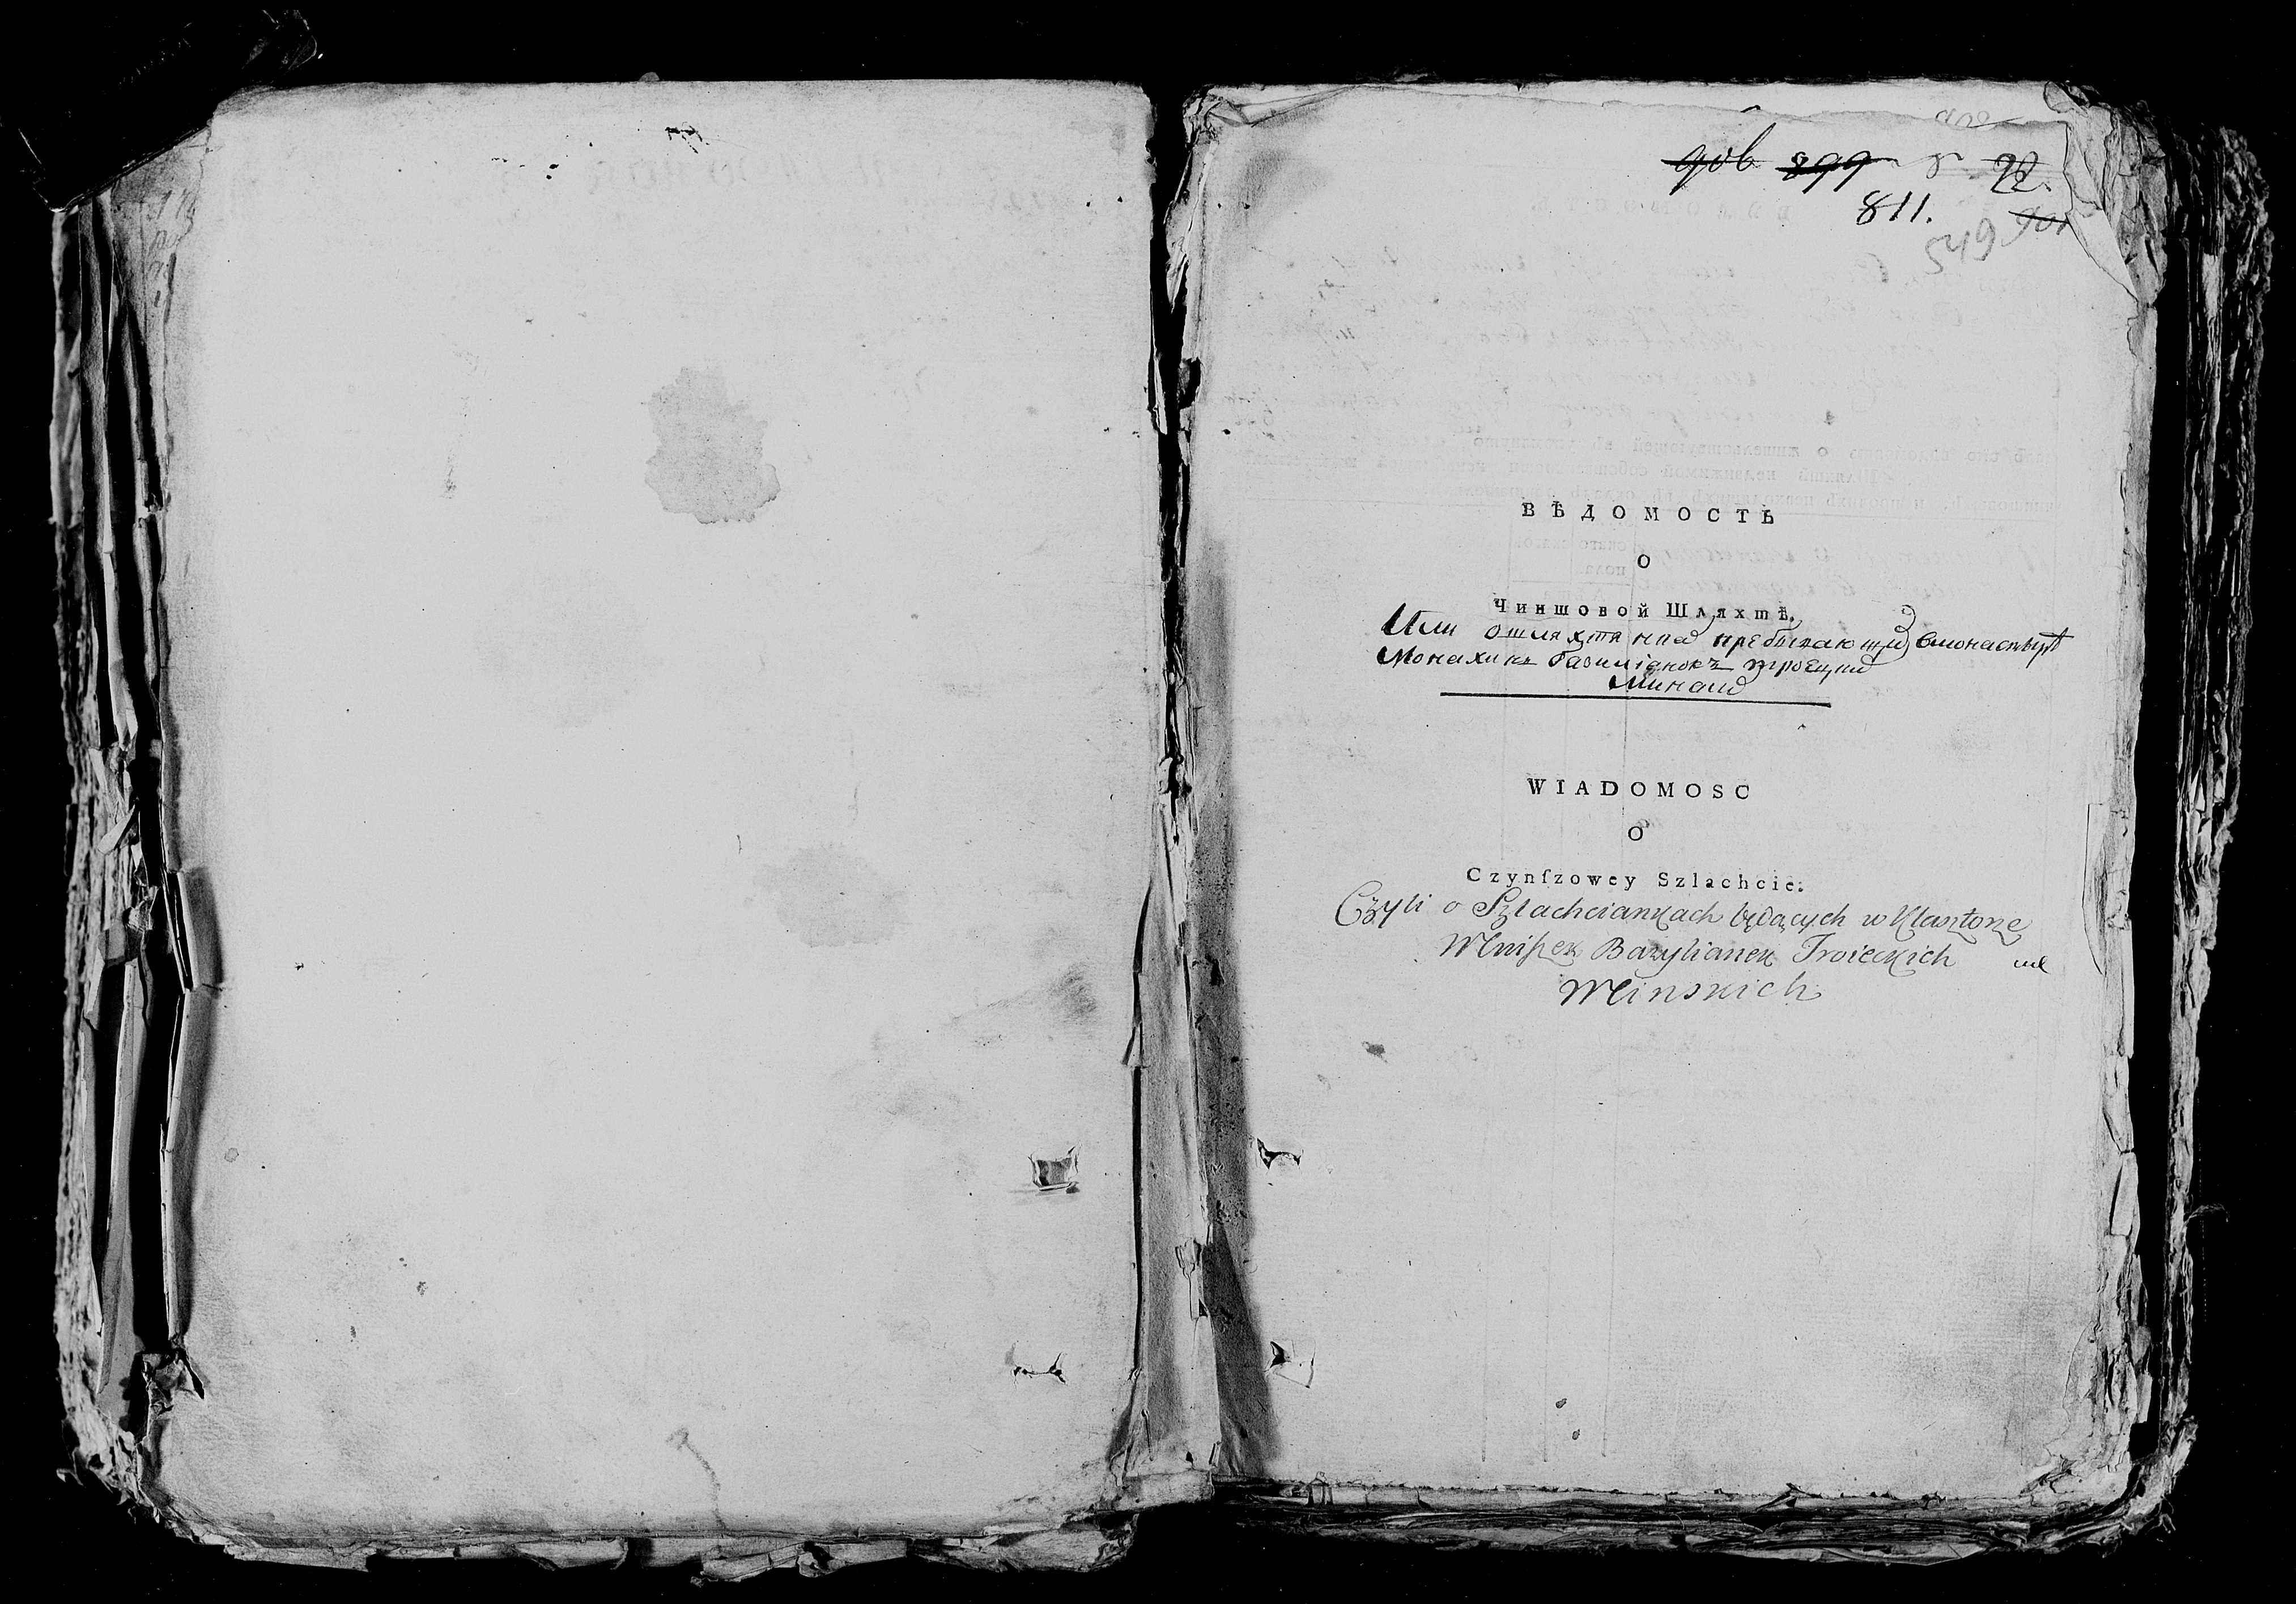 899
22.
811.
549
ВѢДОМОСТЬ
О
Чиншовой Шляхтѣ.
Или о шляхтянкаⷯ пребывающиⷯ вмонастырѣ
Монахинь базилiянокъ троецкиⷯ
Минскиⷯ
WIADOMOSC
O
Czynſzowey Szlachcie.
Czyli o Szlachciankach będących w Klasztorze
Mniszek Bazylianek Troieckich
Minskich